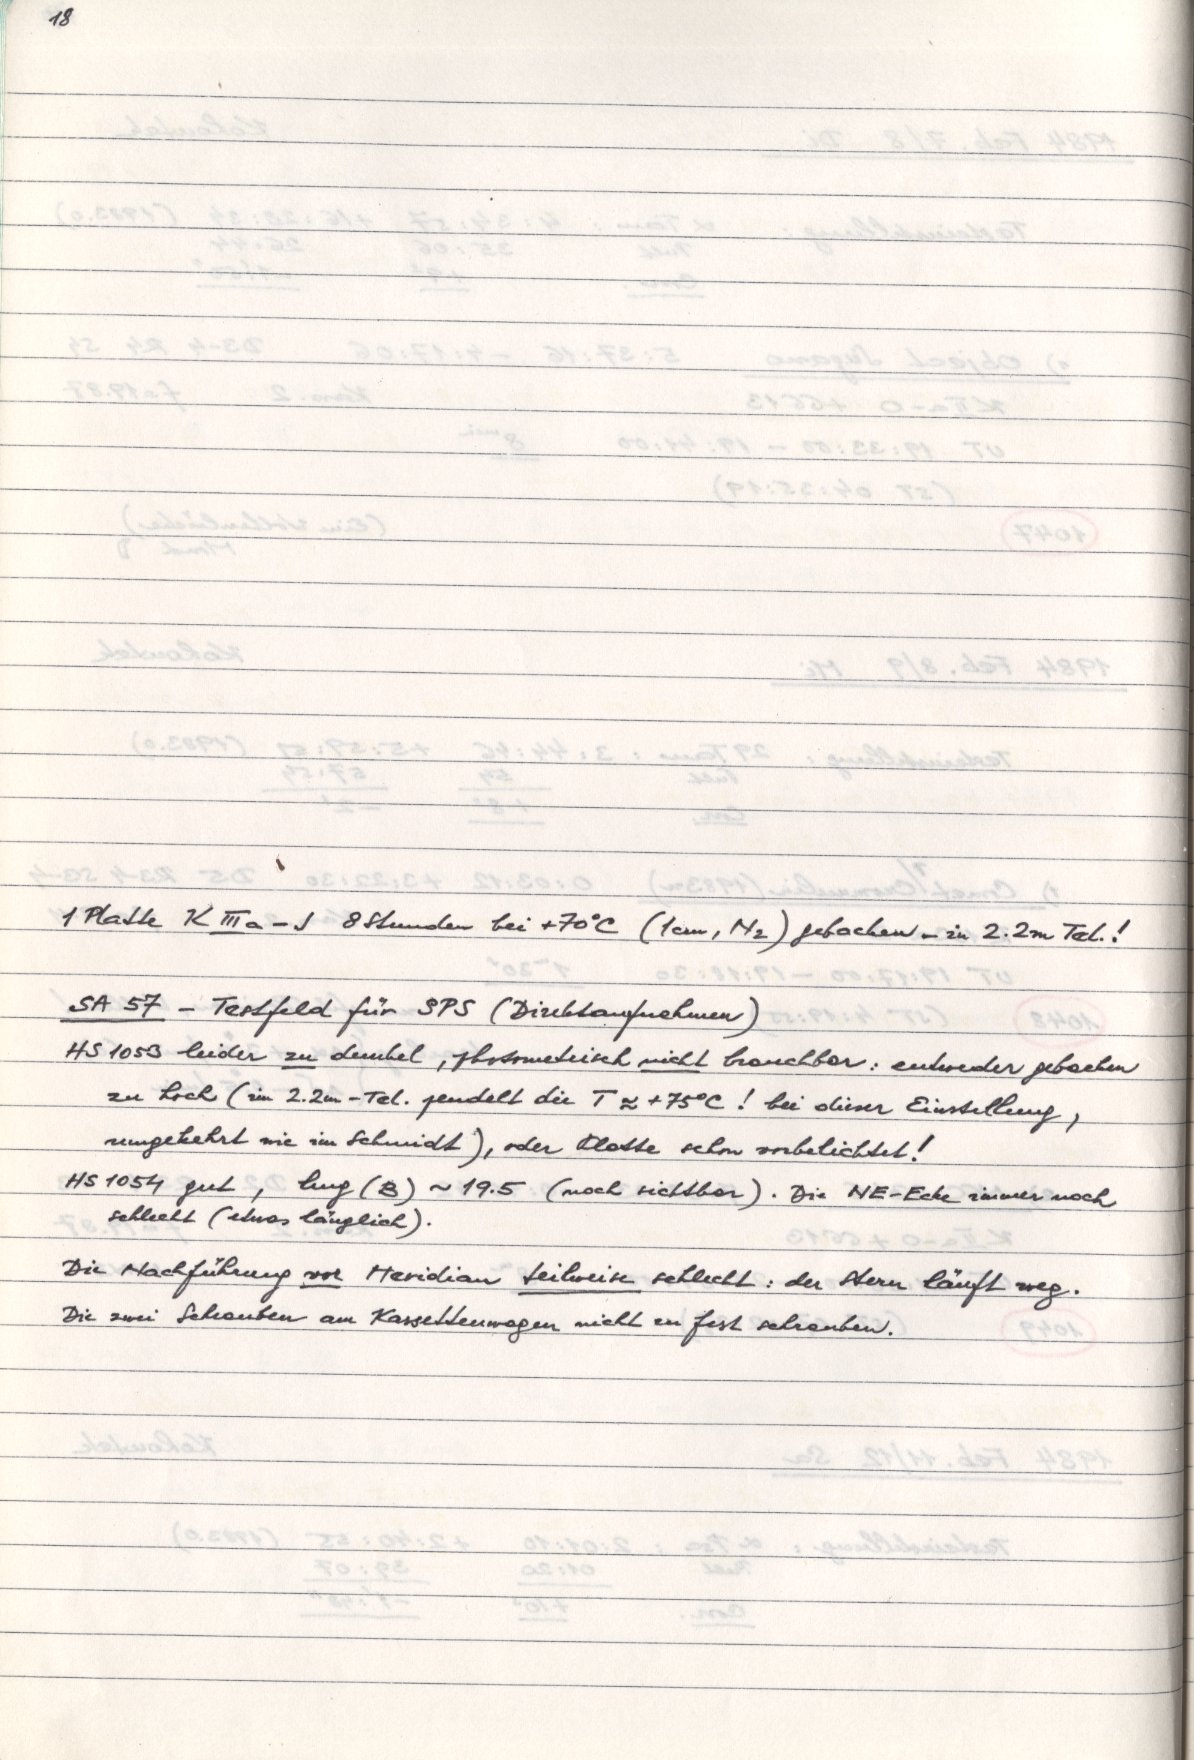 18
1 Platte K IIIa-J 8 Stunden bei +70°C (1cm, N2) gebacken - in 2.2m Tel.!
SA 57 - Testfeld für SPS (Direktaufnahmen)
HS 1053 leider zu dunkel, photometrisch nicht brauchbar: entweder gebacken
zu hoch (im 2.2m-Tel. pendelt die T ≈ +75°C! bei dieser Einstellung,
umgekehrt wie im Schmidt), oder Platte schon vorbelichtet!
HS 1054 gut, lmg (B) ~ 19.5 (noch sichtbar). Die NE-Ecke immer noch
schlecht (etwas länglich).
Die Nachführung vor Meridian teilweise schlecht: der Stern läuft weg.
Die zwei Schrauben am Kassettenwagen nicht zu fest schrauben.